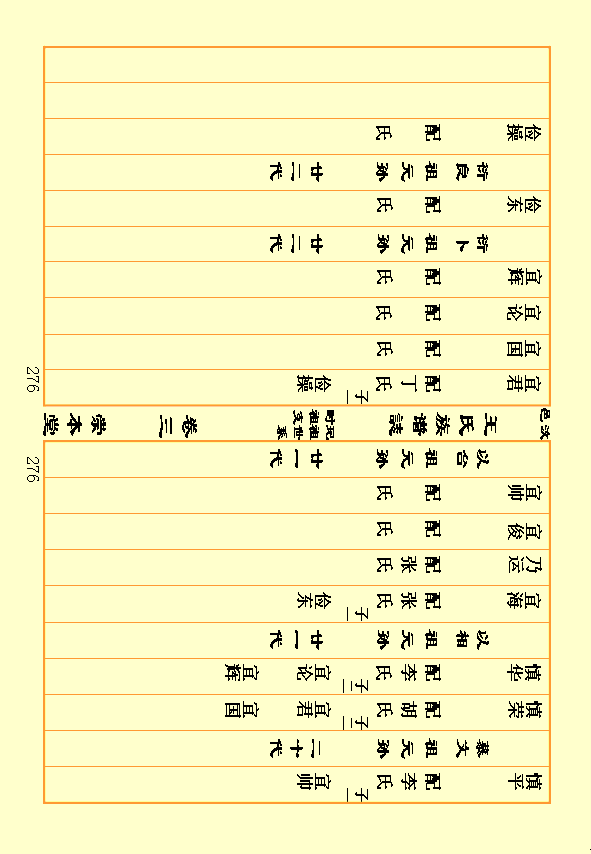 慎平 配李氏 子一 宜帅
慕文祖元孙 二十代
慎荣 配胡氏 子二 宜君 宜国
慎华 配李氏 子二 宜论 宜辉
以相祖元孙 廿一代
宜海 配张氏 子一 俭东
乃运 配张氏
宜俊 配 氏
宜帅 配 氏
以台祖元孙 廿一代
276
汝邑
王氏族譜誌
宛祖世系
时祖支
卷三
崇本堂
276
宜君 配丁氏 子一 俭操
宜国 配 氏
宜论 配 氏
宜辉 配 氏
祈卜祖元孙 廿二代
俭东 配 氏
祈良祖元孙 廿二代
俭操 配 氏